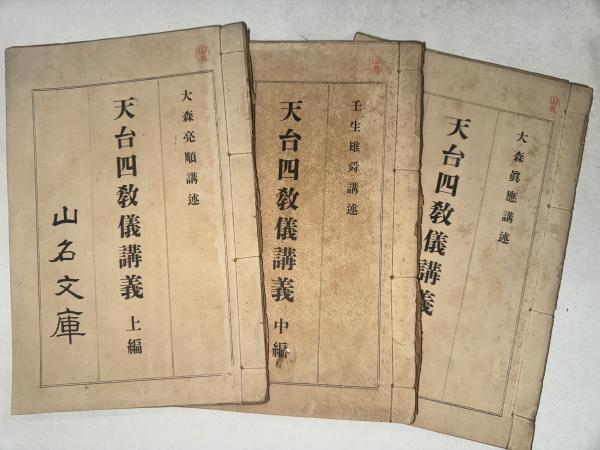 大森亮順講述
天台四教儀講義 上編
山名文庫
山名
壬生雄舜講述
天台四教儀講義 中編
山名
大森眞應講述
天台四教儀講義
山名